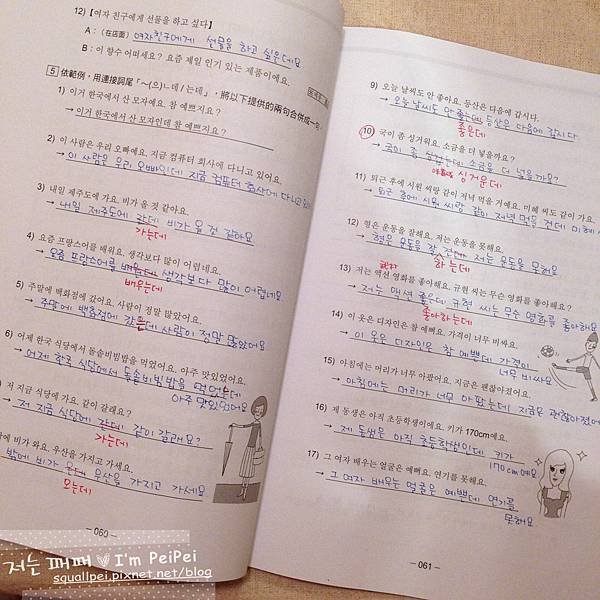 12)【여자 친구에게 선물을 하고 싶다】
A : (在店面) 여자친구에게 선물을 하고 싶은데요
B : 이 향수 어떠세요? 요즘 제일 인기 있는 제품이에요.
5 依範例，用連接詞尾「~(으)ㄴ데 / 는데」，將以下提供的兩句合併成一句。
1) 이거 한국에서 산 모자예요. 참 예쁘지요?
→ 이거 한국에서 산 모자인데 참 예쁘지요?
2) 이 사람은 우리 오빠예요. 지금 컴퓨터 회사에 다니고 있어요.
→ 이 사람은 우리 오빠인데 지금 컴퓨터 회사에 다니고
3) 내일 제주도에 가요. 비가 올 것 같아요.
→ 내일 제주도에 갇데 비가 올 것 같아요
가는데
4) 요즘 프랑스어를 배워요. 생각보다 많이 어렵네요.
→ 요즘 프랑스어를 생각보다 많이 어렵네요
배우는데
5) 주말에 백화점에 갔어요. 사람이 정말 많았어요.
→ 주말에 백화점에 갔는데 사람이 정말 많았어요
6) 어제 한국 식당에서 돌솥비빔밥을 먹었어요. 아주 맛있었어요.
→ 어제 한국 식당에서 돌솥비빔밥을 먹었는데
아주 맛있었어요
저 지금 식당에 가요. 같이 갈래요?
→ 저 지금 식당에 간데 같이 갈래요?
가는데
에 비가 와요. 우산을 가지고 가세요.
밖에 비가 온데 우산을 가지고 가세요
오는데
060
9) 오늘 날씨도 안 좋아요. 등산은 다음에 갑시다.
→ 오늘 날씨도 안 등산은 다음에 갑시다
좋은데
10) 국이 좀 싱거워요. 소금을 더 넣을까요?
→ 국이 좀 소금을 더 넣을까요?
싱거운데
11) 퇴근 후에 시원 씨랑 같이 저녁 먹을 거예요. 미혜 씨도 같이 가요.
→ 퇴근 후에 시원 씨랑 같이 저녁 먹을 건데 미혜
12) 형은 운동을 잘해요. 저는 운동을 못해요.
→ 형은 운동을 잘 저는 운동을 못해요
하는데
13) 저는 액션 영화를 좋아해요. 규현 씨는 무슨 영화를 좋아해요?
→ 저는 액션 좋은데 규현 씨는 무슨 영화를 좋아해요
좋아하는데
14) 이 옷은 디자인은 참 예뻐요. 가격이 너무 비싸요.
→ 이 옷은 디자인은 참 예쁜데 가격이
너무 비싸요
15) 아침에는 머리가 너무 아팠어요. 지금은 괜찮아졌어요.
→ 아침에는 머리가 너무 아팠는데 지금은 괜찮아졌어
16) 제 동생은 아직 초등학생이에요. 키가 170cm예요.
→ 제 동생은 아직 초등학생인데 키가
170cm예요
17) 그 여자 배우는 얼굴은 예뻐요. 연기를 못해요.
→ 그 여자 배우는 얼굴은 예쁜데 연기를
못해요
061
저는 페페 ♥ I'm PeiPei
squallpei.pixnet.net/blog